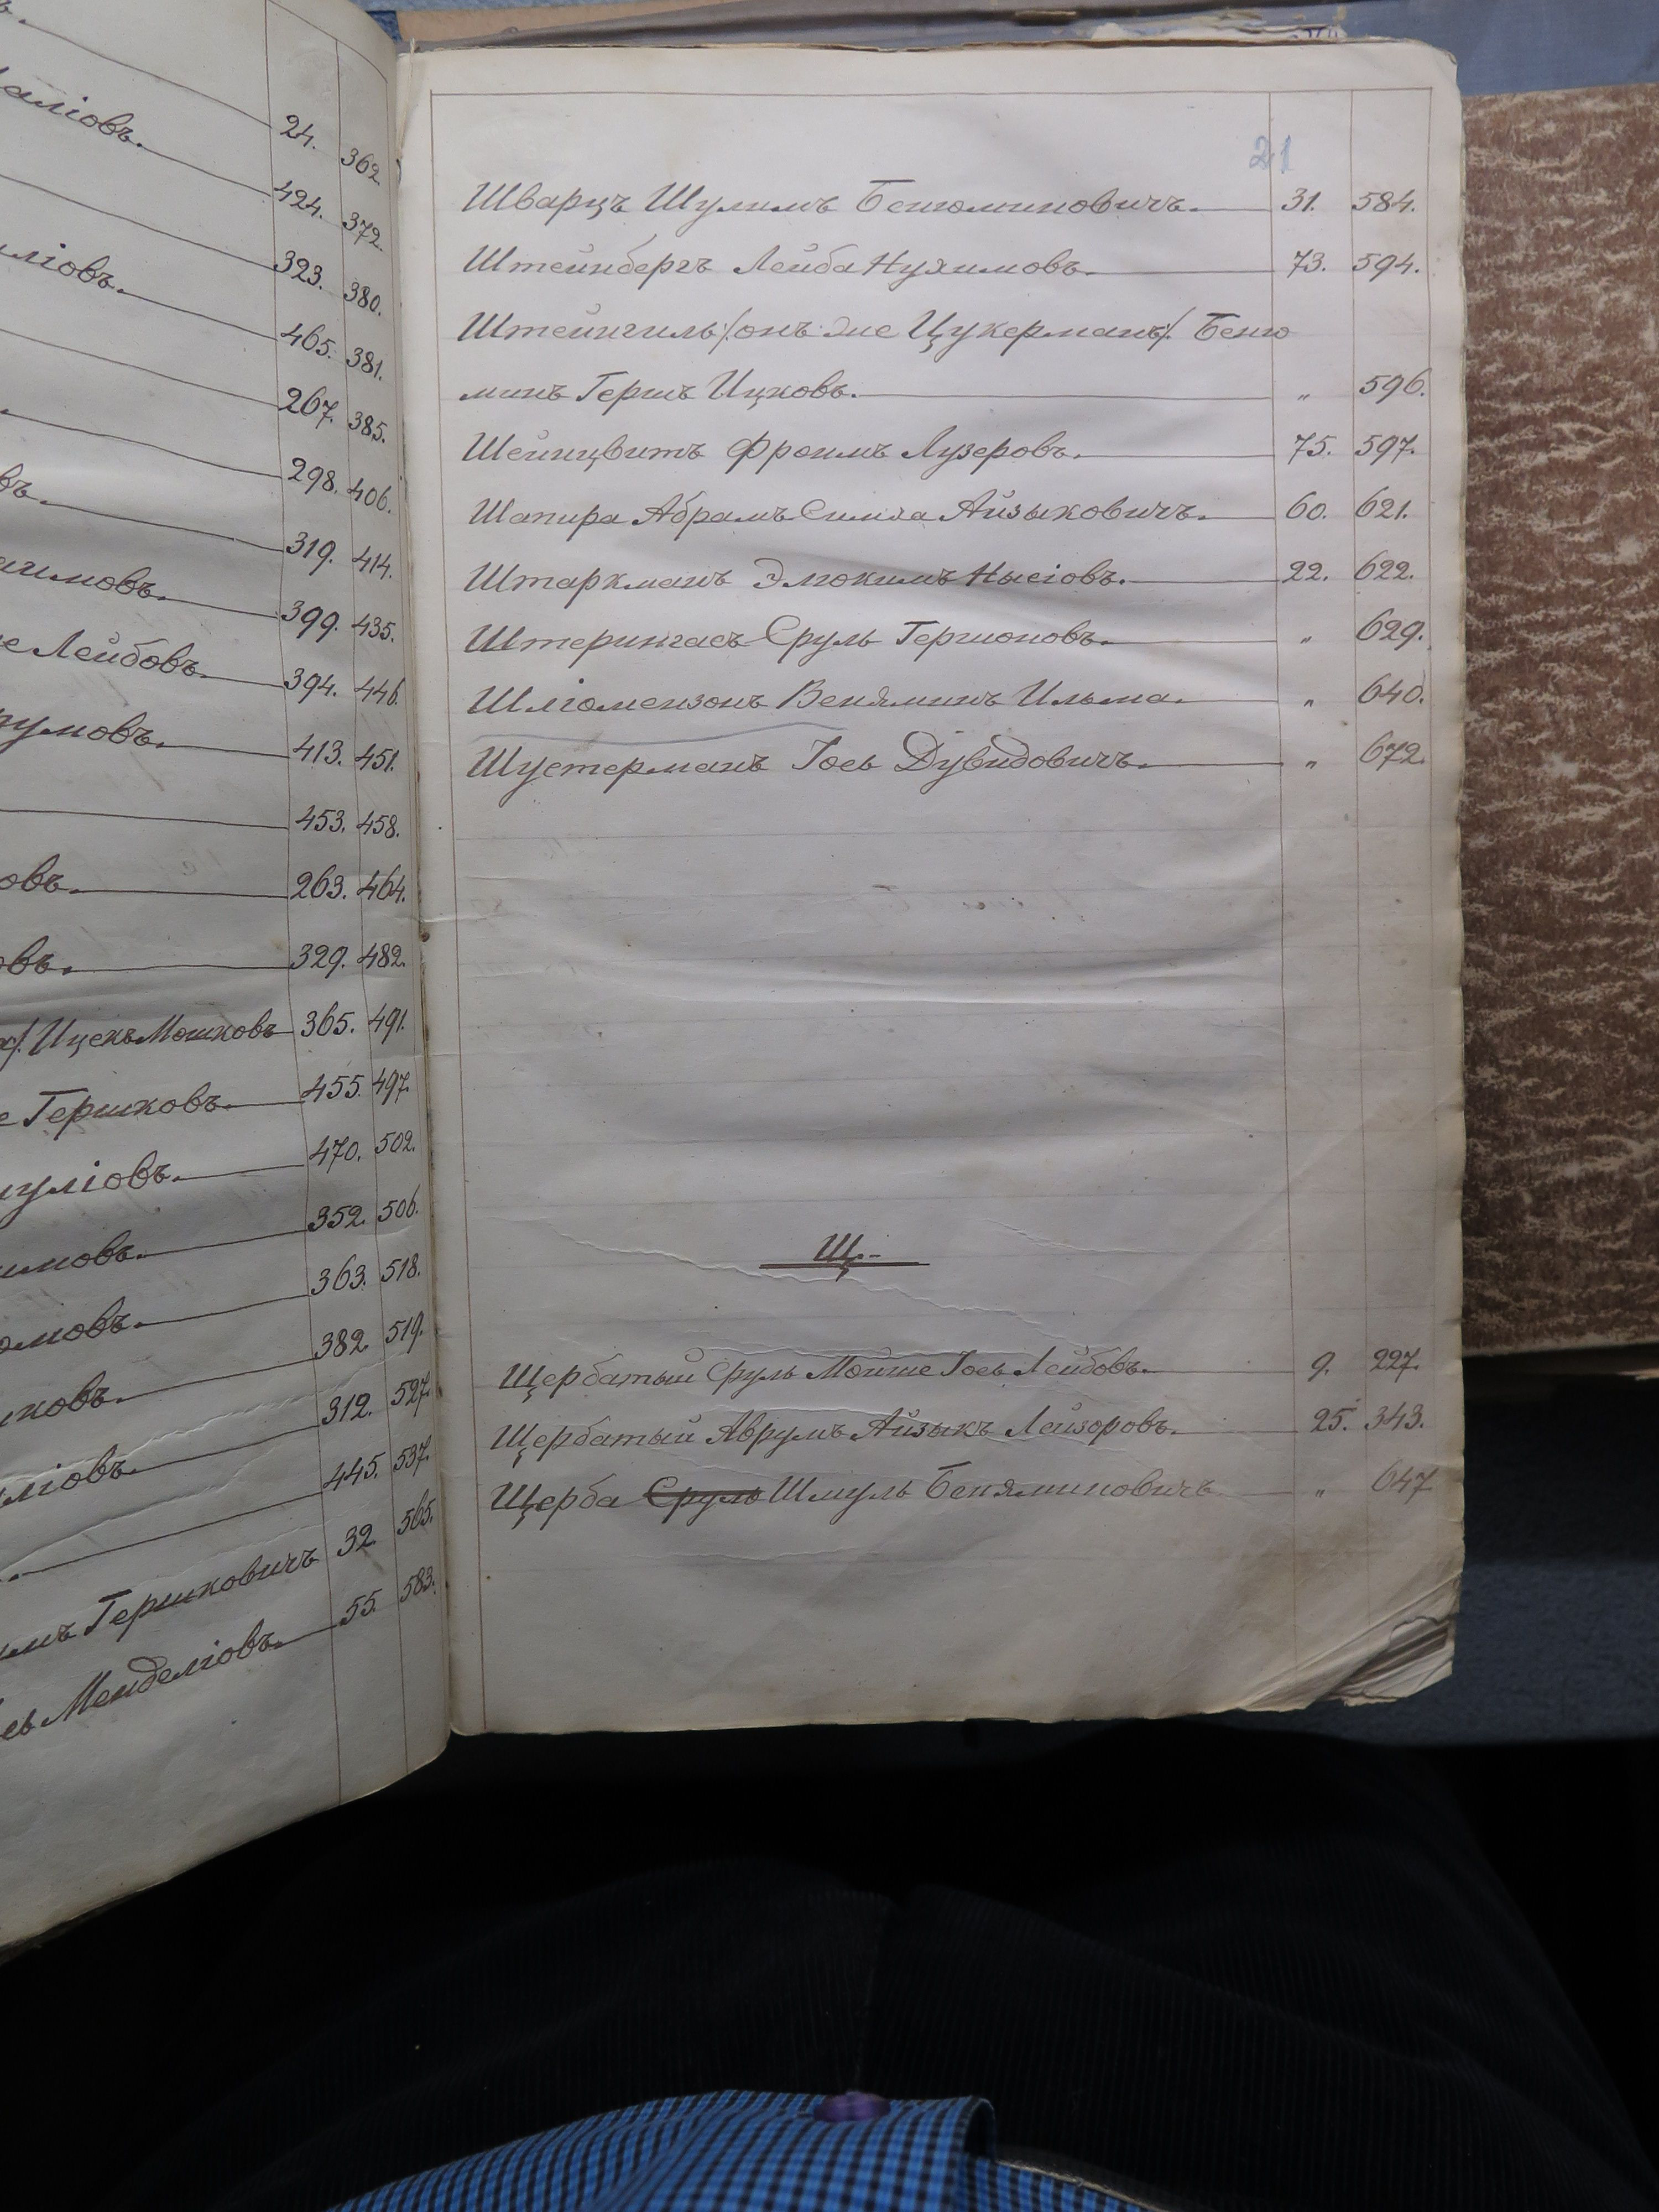 24. 362.
аліовъ. 424. 372.
323. 380.
ліовъ. 465. 381.
267. 385.
298. 406.
въ. 319. 414.
имовъ. 399. 435.
е Лейбовъ. 394. 446.
умовъ. 413. 451.
453. 458.
овъ. 263. 464.
овъ. 329. 482.
Ицекъ Мошковъ 365. 491.
е Гершковъ. 455. 497.
уліовъ. 470. 502.
имовъ. 352. 506.
омовъ. 363. 518.
ковъ. 382. 519.
ліовъ. 312. 527.
445. 537.
мъ Гершковичъ 32. 565.
Менделіовъ. 55. 583.
21
Шварцъ Шулимъ Бенюминовичъ. 31. 584.
Штейнбергъ Лейба Нухимовъ. 73. 594.
Штейнгиль /:онъ же Цукерманъ:/ Беню
минъ Гершъ Ицковъ. " 596.
Шейнцвитъ Фроимъ Лузеровъ. 75. 597.
Шапира Абрамъ Симха Айзыковичъ. 60. 621.
Штаркманъ Элюкимъ Нысіовъ. 22. 622.
Штеринасъ Сруль Гершоновъ. " 629.
Шліомензонъ Веняминъ Ильма. " 640.
Шустерманъ Іось Дувидовичъ. " 672.
Щ.
Щербатый Сруль Мойше Іось Лейбовъ. 9. 227.
Щербатый Аврумъ Айзыкъ Лейзоровъ. 25. 343.
Щерба Сруль Шмуль Беняминовичъ " 647